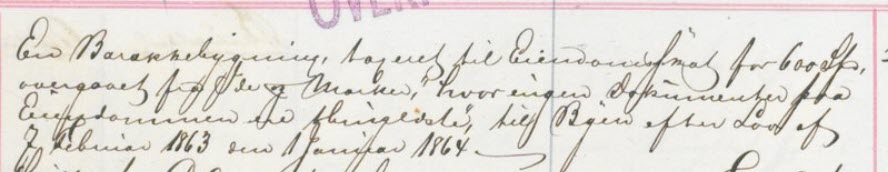 En Barakkebygning, taxeret til Eiendomsskat for 600 Sp,
overgaaet fra "de 7 Marker," hvor ingen Dokumenter paa
Eiendommen ere thinglæste, til Byen efter Lov af
7 Februar 1863 den 1 Januar 1864.